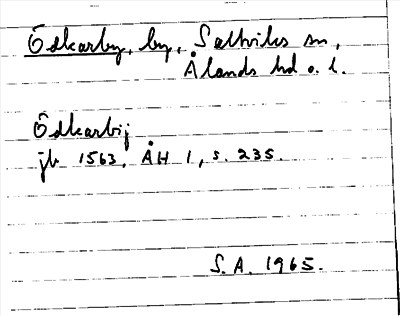 Ödkarby, by, Saltviks sn,
Ålands hd o. l.
Ödkarbij
jb 1563, ÅH 1, s. 235.
S.A. 1965.